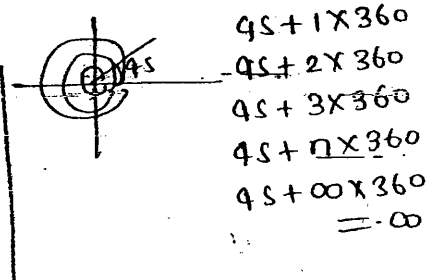 45
45 + 1 x 360
45 + 2 x 360
45 + 3 x 360
45 + n x 360
45 + ∞ x 360
= ∞